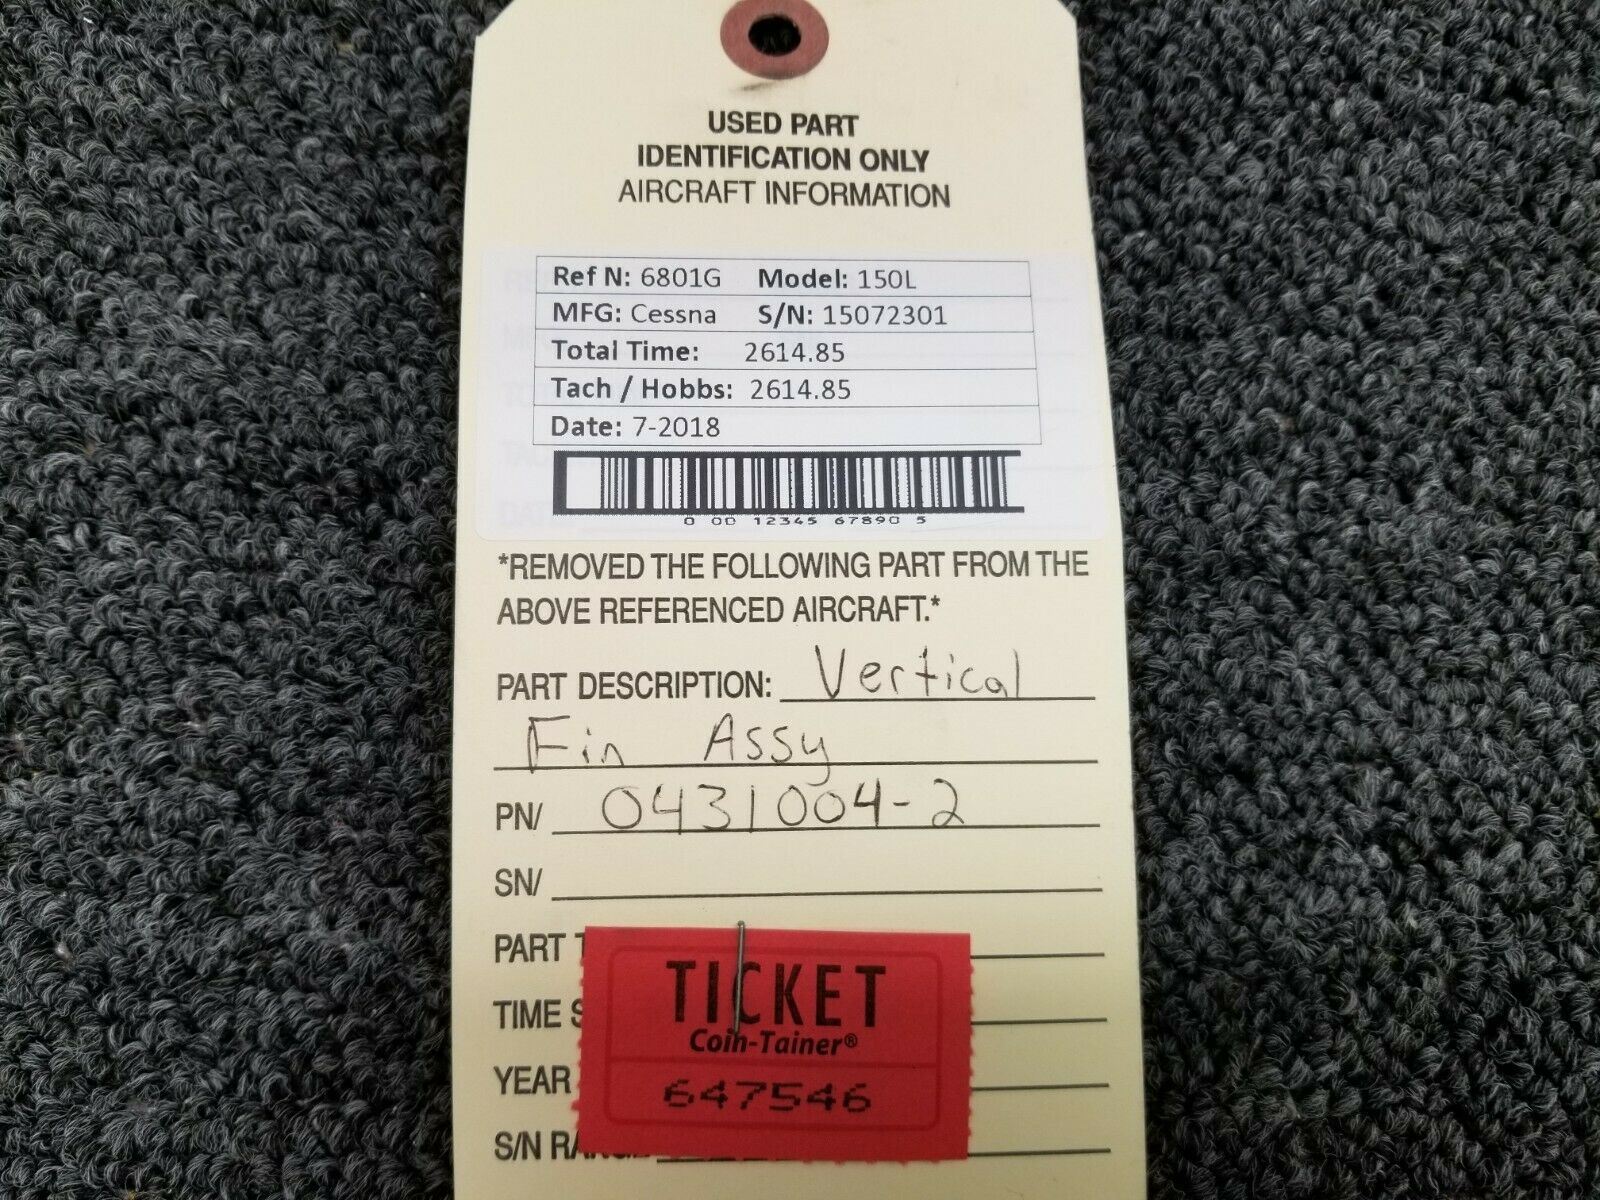 USED PART
IDENTIFICATION ONLY
AIRCRAFT INFORMATION
Ref N: 6801G Model: 150L
MFG: Cessna S/N: 15072301
Total Time: 2614.85
Tach / Hobbs: 2614.85
Date: 7-2018
0 00 12345 67890 5
*REMOVED THE FOLLOWING PART FROM THE
ABOVE REFERENCED AIRCRAFT.*
PART DESCRIPTION: Vertical
Fin Assy
PN/ 0431004-2
SN/
PART
TIME
YEAR
S/N
TICKET
Coin-Tainer®
647546